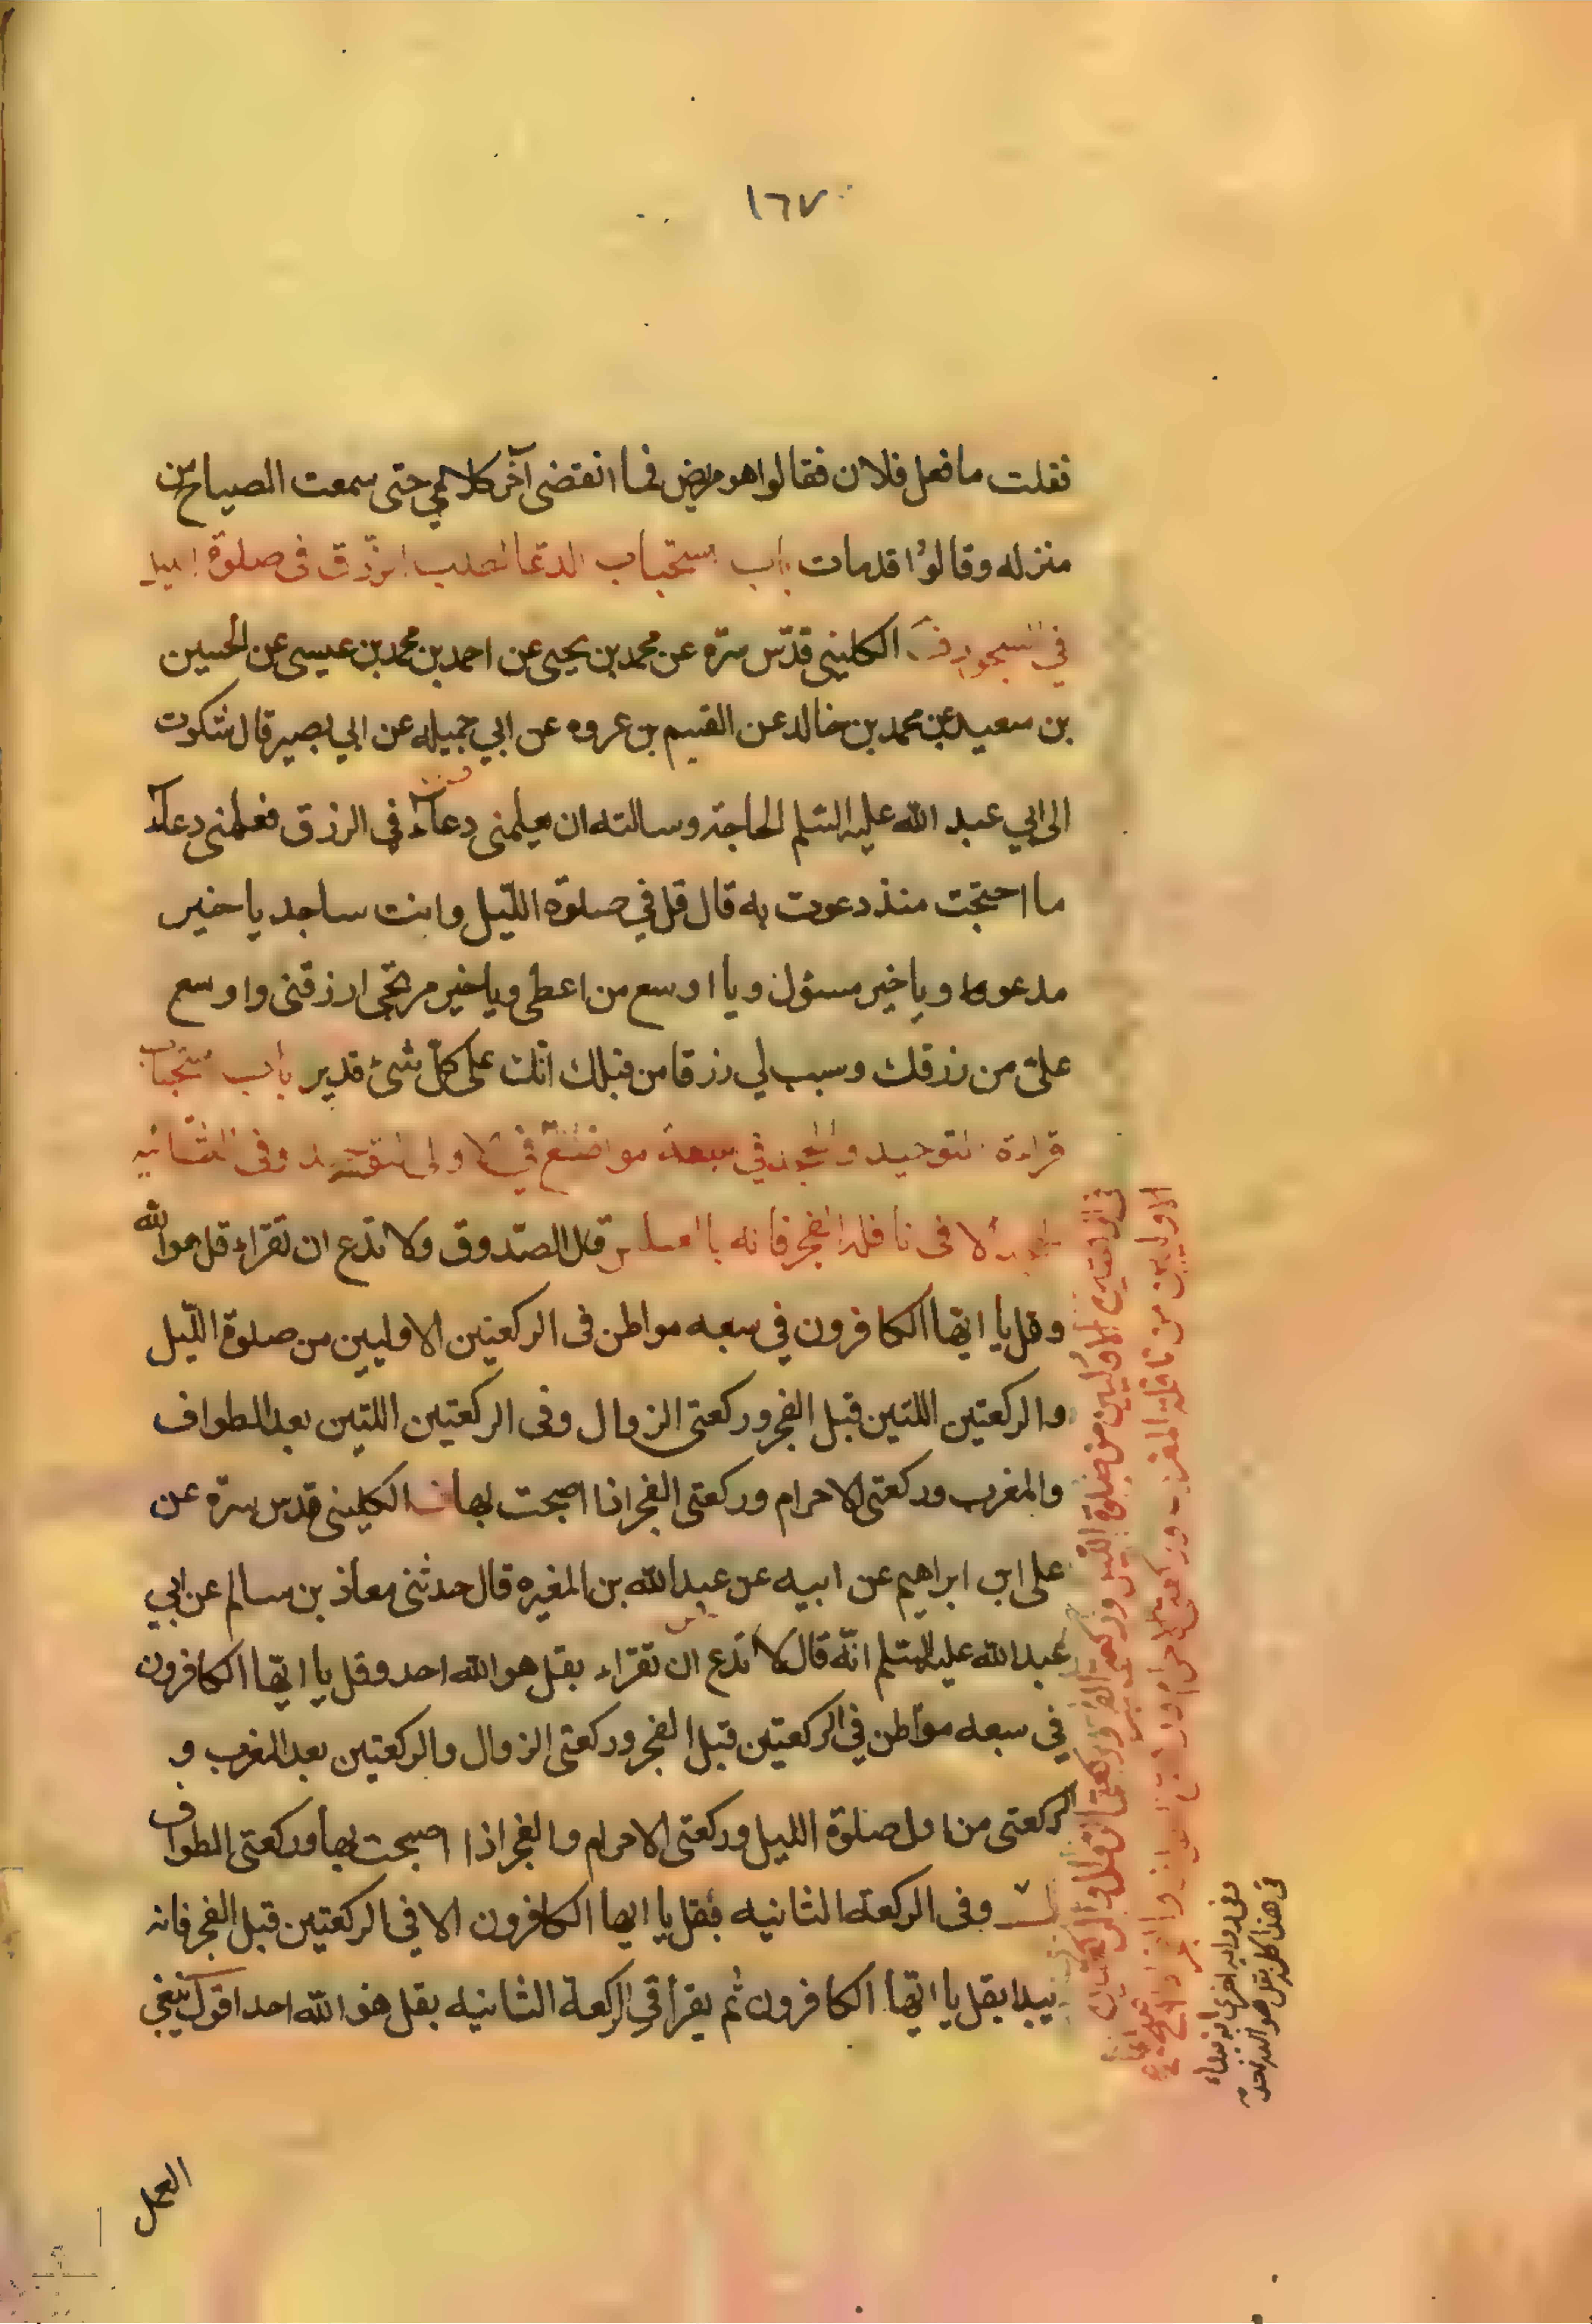 ١٦٧
فقلت ما فعل فلان فقالوا هو مريض فما انقضى آخر كلامي حتى سمعت الصياح من
منزله وقالوا قد مات باب استحباب الدعا لطلب الرزق فى صلوة الليل
في السجود الكلينى قدّس سرّه عن محمد بن يحيى عن احمد بن محمد بن عيسى عن الحسين
بن سعيد عن محمد بن خالد عن القسم بن عروه عن ابي جميله عن ابي بصير قال شكوت
الى ابي عبد الله عليه السّلم الحاجة وسالته ان يعلمنى دعاءً في الرزق فعلمنى دعاءً
ما احتجت منذ دعوت به قال قل في صلوة اللّيل وانت ساجد يا خير
مدعو ويا خير مسئول ويا اوسع من اعطى ويا خير مرتجى ارزقنى واوسع
علىّ من رزقك وسبب لي رزقا من قبلك انّك على كلّ شئ قدير باب استحباب
قراءة التوحيد والجحد في سبعة مواضع في الاولى التوحيد وفى الثانيه
الجحد الا فى نافلة الفجر فانه بالعكس قال الصّدوق ولا تدع ان تقراء قل هو الله
وقل يا ايها الكافرون في سبعه مواطن فى الركعتين الاوليين من صلوة اللّيل
والركعتين اللتين قبل الفجر وركعتى الزوال وفى الركعتين اللتين بعد الطواف
والمغرب وركعتى الاحرام وركعتى الفجر اذا اصبحت بها الكلينى قدس سرّه عن
على ابن ابراهيم عن ابيه عن عبد الله بن المغيره قال حدثنى معاذ بن سالم عن ابي
عبد الله عليه السّلم انّه قال لا تدع ان تقراء بقل هو الله احد وقل يا ايّها الكافرون
في سبعه مواطن في الركعتين قبل الفجر وركعتى الزوال والركعتين بعد المغرب و
الركعتى من اول صلوة الليل وركعتى الاحرام والفجر اذا اصبحت بها وركعتى الطواف
وفى الركعة الثانيه بقل يا ايها الكافرون الا في الركعتين قبل الفجر فانه
يبدا بقل يا ايّها الكافرون ثم يقرأ في الركعة الثانيه بقل هو الله احد اقول ينبغي
العمل
الاوليين من نافلة المغرب وركعتى الاحرام
وفى رواية اخرى انه يبداء
فى هذا كله بقل هو الله احد